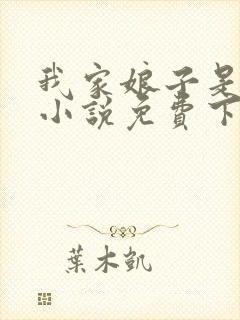 我家娘子是
小說免費下
葉木凱